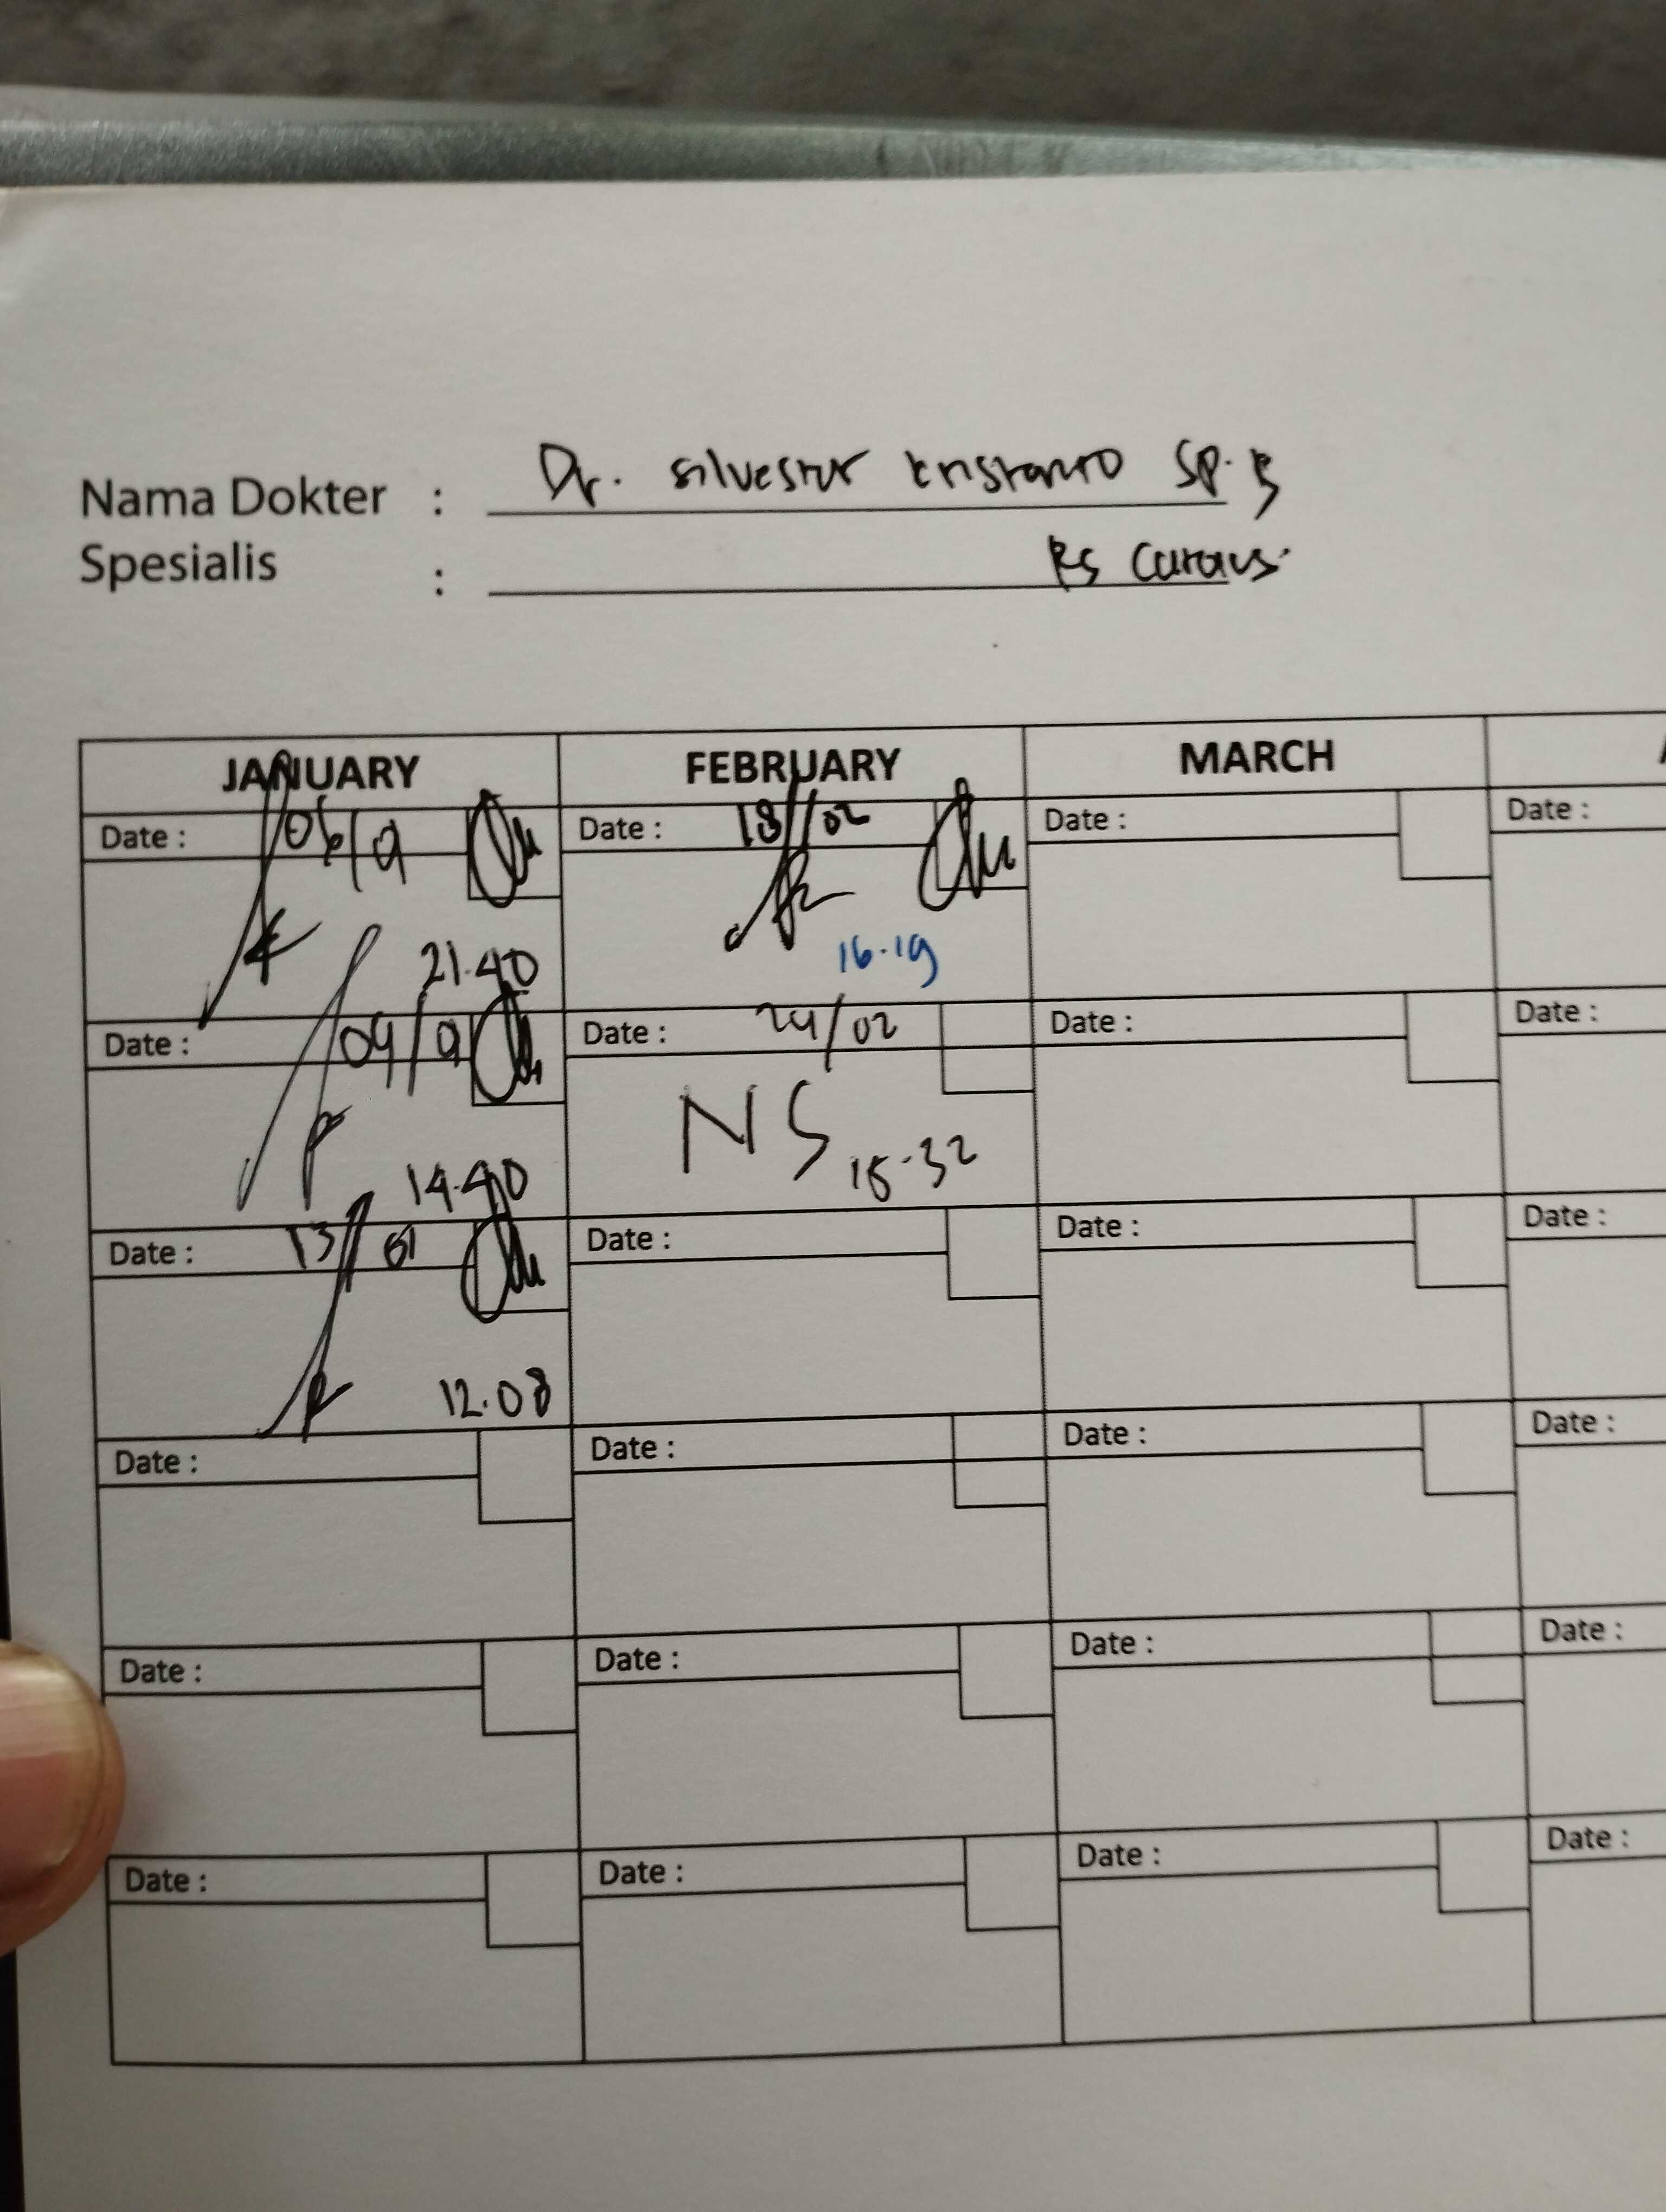 Nama Dokter : Dr. silvester kristanto Sp. B
Spesialis : RS Carolus
JANUARY FEBRUARY MARCH
Date : 06/01 Date : 18/02 Date : Date :
21.40 16.19
Date : 09/01 Date : 24/02 Date : Date :
NS
14.40 15.32
Date : 13/01 Date : Date : Date :
12.08
Date : Date : Date : Date :
Date : Date : Date : Date :
Date : Date : Date : Date :